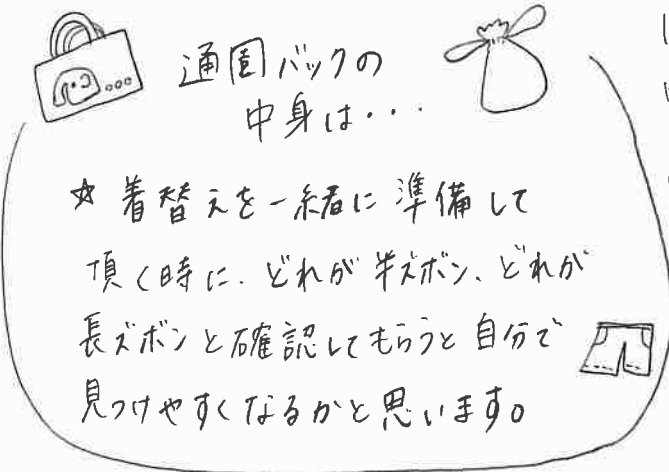 通園バックの
中身は・・・
☆ 着替えを一緒に準備して
頂く時に、どれが半ズボン、どれが
長ズボンと確認してもらうと自分で
見つけやすくなるかと思います。